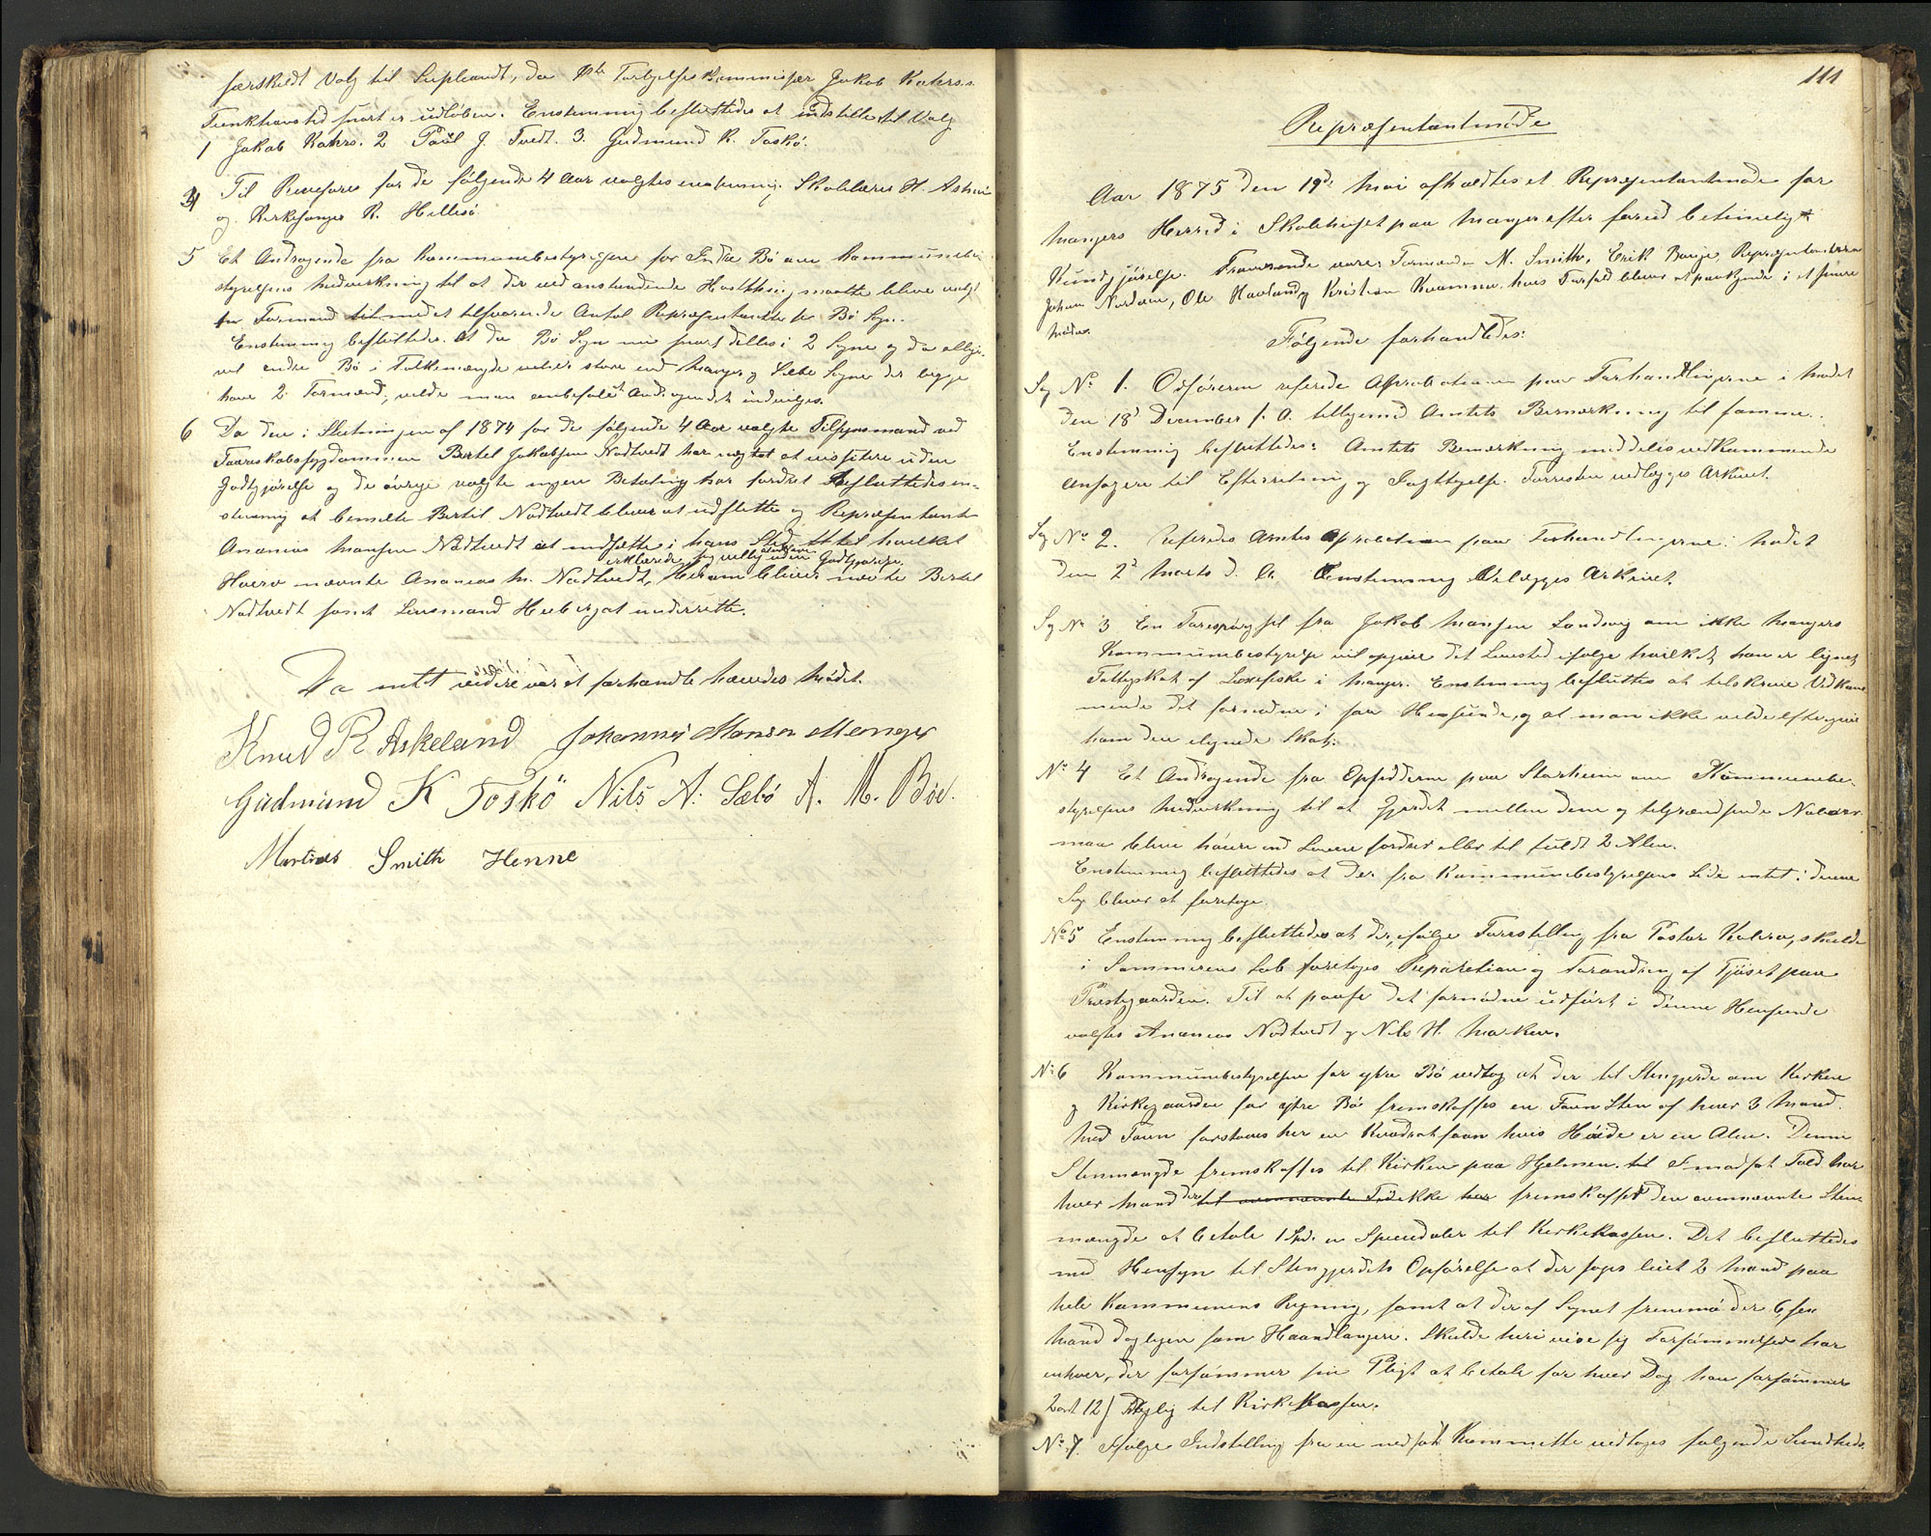 særskildt Valg til Supleant, da Forligelseskommissær Jakob Kahrs's
Funktionstid snart er udløben. Enstemmig besluttedes at indstille til Valg
1 Jakob Kahrs. 2 Paül J. Tvedt. 3. Gudmund K. Toskö.
4 Til Revisorer for de følgende 4 Aar valgtes enstemmig: Skolelærer H. Askvi
og Kirkesanger R. Hillesö
5 Et Andragende fra Kommunebestyrelsen for Indre Bö om Kommunebe-
styrelsens Medvirkning til at der ved anstundende Hostthing maatte blive valgt
Formand med et tilsvarende Antal Repræsentanter for Bö Sogn.
Enstemmig besluttedes: At da Bö Sogn nu snart deles i 2 Sogne og da allige-
vel indre Bö i Folkemængde vil være större end Manger og Sæbö Sogne der begge
have 2 Formænd, vilde man anbefale at Andragendet indvilges.
6 Da den i Slutningen af 1874 for de følgende 4 Aar valgte Tilsynsmand ved
Faareskabsygdommen Bertel Jakobsen Nodtvedt har nægtet at visitere uden
Godtgjörelse og de övrige valgte ingen Betaling har fordret besluttedes en-
stemmig at bemeldte Bertil Nodtvedt bliver at udslette og Repræsentant
Ananias Monsen Nodtvedt at indsætte i hans Sted til hvilket
erklærede sig villig uden Godtgjörelse.
Hverv nævnte Ananias M. Nodtvedt. Herom bliver nævnte Bertel
Nodtvedt samt Lensmand Heeberg at underrette.
Da intet videre var at forhandle hævedes Mödet.
Knud R Askeland Johannes Monsen Manger
Gudmund K Toskö Nils A: Sæbö A. M. Böe.
Martinus Smith Henne
111
Repræsentantmöde
Aar 1875 den 19de Mai afholdtes et Repræsentantmöde for
Mangers Herred i Skolehuset paa Manger efter forud betimelig
Kundgjörelse. Fraværende vare: Formænd M. Smith, Erik Bauge, Repræsentanterne
Johan Nordvin, Ole Havland og Kristian Kvamme hvis Forfald bliver at paakjende i et senere
Möde.
Følgende forhandledes:
Sag No 1. Ordføreren referede Approbationen paa Forhandlingerne i Mödet
den 18d December f. A. tilligemed Amtets Bemærkning til samme.
Enstemmig besluttedes: Amtets Bemærkning meddeles vedkommende
Ansøgere til Efterretning og Iagttagelse. Forresten vedlægges Arkivet.
Sag No 2. Referedes Amtets Approbation paa Forhandlingerne i Mödet
den 2d Marts d. A. Enstemmig Vedlægges Arkivet.
Sag No 3 En Forespörgsel fra Jakob Monsen Landsvig om ikke Mangers
Kommunebestyrelse vil opgive det Lensted ifølge hvilket han er lignet
Fattigskat af Laxefiske i Manger. Enstemmig besluttes at tilskrive Vedkom-
mende det fornødne i saa Henseende, og at man ikke vilde eftergive
ham den ilignede Skat.
No 4 Et Andragende fra Opsidderne paa Storheim om Kommunebe-
styrelsens Medvirkning til at Gjerdet mellem dem og tilgrændsende Naboer
maa blive höiere end Loven fordrer eller til fuldt 2 Alen.
Enstemmig besluttedes at der fra Kommunebestyrelsens Side intet i denne
Sag bliver at foretage.
No 5 Enstemmig besluttedes at der, ifølge Forestilling fra Pastor Kahrs, skulde
i Sommerens Løb foretages Reparation og Forandring af Fjöset paa
Præstegaarden. Til at paase det fornødne udført i denne Henseende
valgtes Ananias Nodtvedt og Nils H. Marken.
No 6 Kommunebestyrelsen for ytre Bö vedtog at der til Stengjerde om Kirken
og Kirkegaarden for ytre Bö fremskaffes en Favn Sten af hver 3 Mand.
Med Favn forstaaes her en Kvadratfavn hvis Höide er en Alen. Denne
Stenmængde fremskaffes til Kirken paa Hjelmen. I modsat Fald har
hver Mand der til ovennævnte Tid ikke har fremskaffet den ovennævnte Sten-
mængde at betale 1 Spd. en Speciedaler til Kirkekassen. Det besluttedes
med Hensyn til Stengjerdets Opførelse at der foges leiet 2 Mand paa
hele Kommunens Regning, samt at der af Sognet fremmöder 6 sex
Mand daglegen som Haandlangere. Skulde heri vise sig Forsömmelse har
enhver, der forsömmer sin Pligt at betale for hver Dag han forsömmer
2 ort 12 Skilg til Kirkekassen.
No 7. Ifølge Indstilling fra en nedsat Kommitte vedtoges følgende Sundheds-